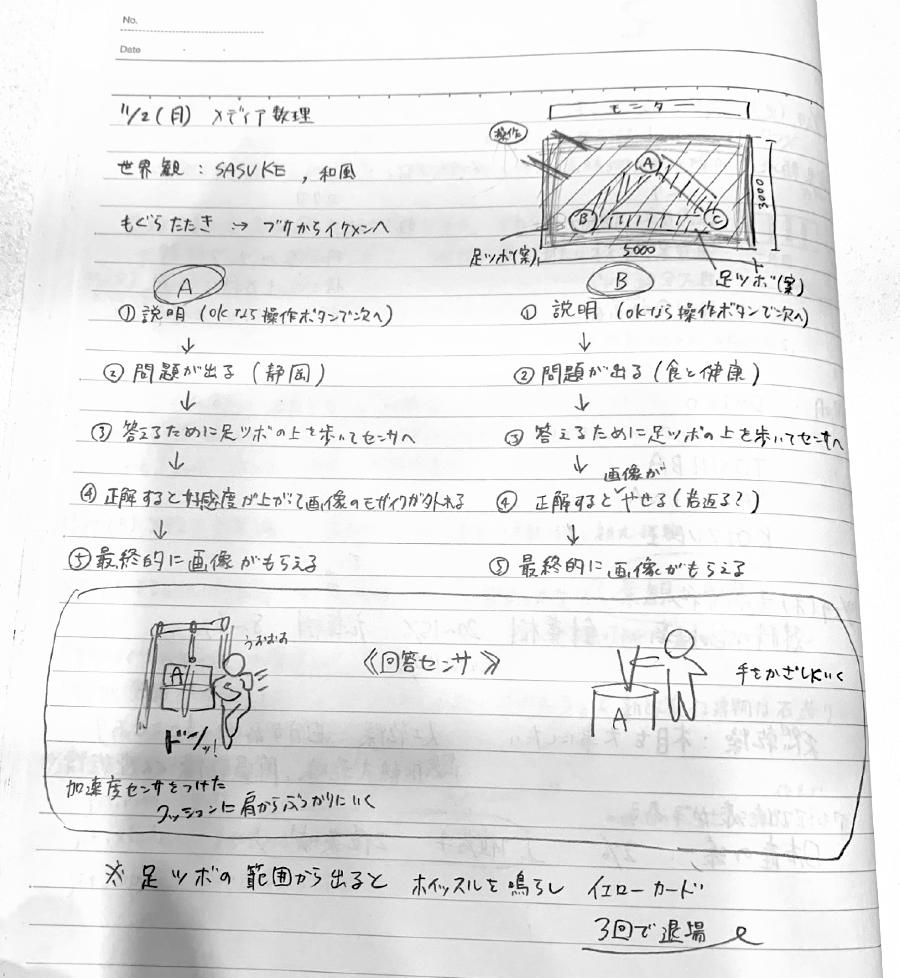 No.
Date
11/2(月) メディア数理
モニター
操作
世界観:SASUKE,和風
A
B
C
3000
5000
もぐらたたき → ブサからイケメンへ
足ツボ(案)
足ツボ(案)
A
①説明(OKなら操作ボタンで次へ)
↓
②問題が出る(静岡)
↓
③答えるために足ツボの上を歩いてセンサへ
↓
④正解すると好感度が上がって画像のモザイクが外れる
↓
⑤最終的に画像がもらえる
B
①説明(OKなら操作ボタンで次へ)
↓
②問題が出る(食と健康)
↓
③答えるために足ツボの上を歩いてセンサへ
↓
④正解すると画像がやせる(若返る?)
↓
⑤最終的に画像がもらえる
うおおお
《回答センサ》
A
ドンッ!
加速度センサをつけた
クッションに肩からぶつかりにいく
A
手をかざしにいく
※足ツボの範囲から出ると ホイッスルを鳴らし イエローカード
3回で退場